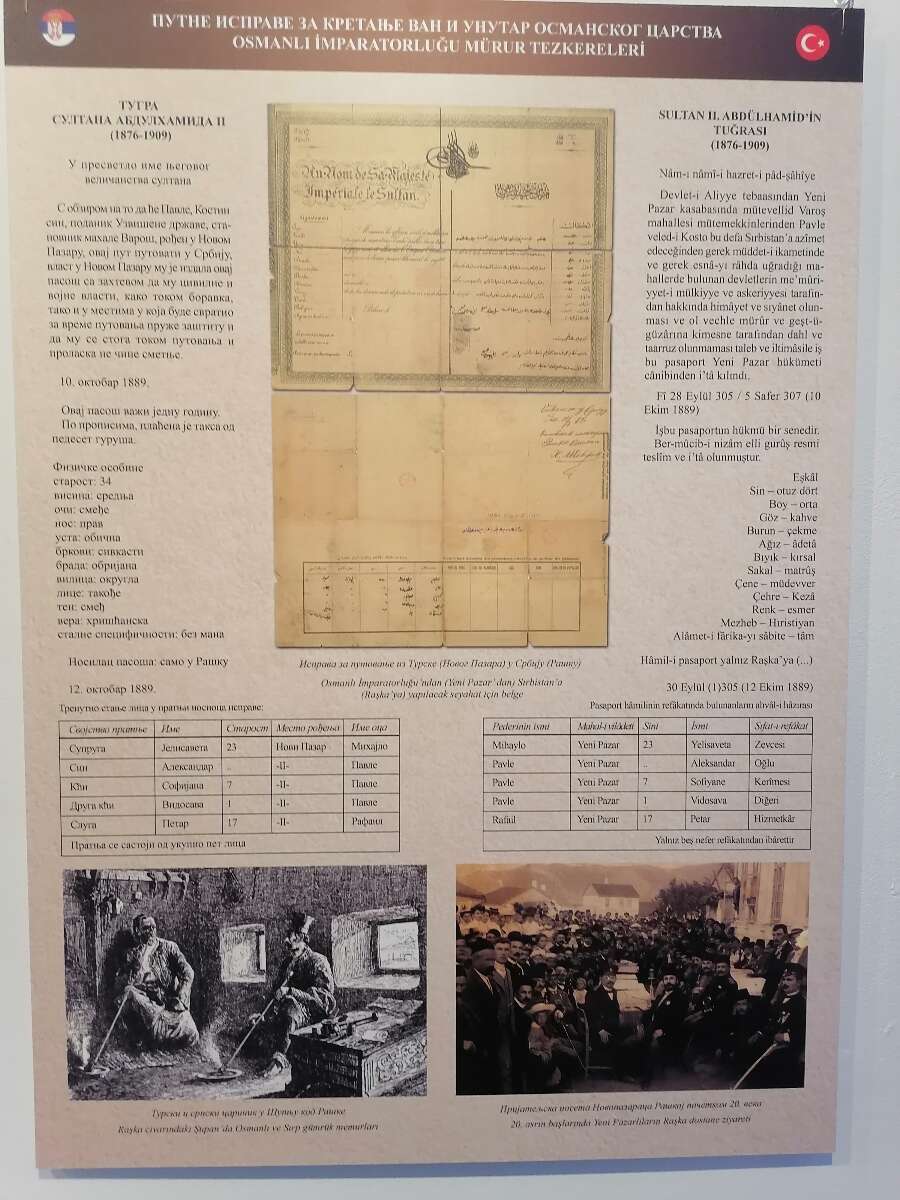 ПУТНЕ ИСПРАВЕ ЗА КРЕТАЊЕ ВАН И УНУТАР ОСМАНСКОГ ЦАРСТВА
OSMANLI İMPARATORLUĞU MÜRUR TEZKERELERİ
ТУГРА
СУЛТАНА АБДУЛХАМИДА II
(1876-1909)
У пресветло име његовог
величанства султана
С обзиром на то да ће Павле, Костин
син, поданик Узвишене државе, ста-
новник махале Варош, рођен у Новом
Пазару, овај пут путовати у Србију,
власт у Новом Пазару му је издала овај
пасош са захтевом да му цивилне и
војне власти, како током боравка,
тако и у местима у која буде свратио
за време путовања пруже заштиту и
да му се стога током путовања и
проласка не чине сметње.
10. октобар 1889.
Овај пасош важи једну годину.
По прописима, плаћена је такса од
педесет гуруша.
Физичке особине
старост: 34
висина: средња
очи: смеђе
нос: прав
уста: обична
бркови: сивкасти
брада: обријана
вилица: округла
лице: такође
тен: смеђ
вера: хришћанска
сталне специфичности: без мана
Носилац пасоша: само у Рашку
12. октобар 1889.
Au Nom de Sa Majesté
Impériale le Sultan.
SULTAN II. ABDÜLHAMİD'İN
TUĞRASI
(1876-1909)
Nâm-ı nâmî-i hazret-i pâd-şâhîye
Devlet-i Aliyye tebaasından Yeni
Pazar kasabasında mütevellid Varoş
mahallesi mütemekkinlerinden Pavle
veled-i Kosto bu defa Sırbistan'a azîmet
edeceğinden gerek müddet-i ikametinde
ve gerek esnâ-yı râhda uğradığı ma-
hallerde bulunan devletlerin me'mûri-
yyet-i mülkiyye ve askeriyyesi tarafın-
dan hakkında himâyet ve sıyânet olun-
ması ve ol vechle mürûr ve geşt-ü-
güzârına kimesne tarafından dahl ve
taarruz olunmaması taleb ve iltimâsile iş
bu pasaport Yeni Pazar hükümeti
cânibinden i'tâ kılındı.
Fî 28 Eylül 305 / 5 Safer 307 (10
Ekim 1889)
İşbu pasaportun hükmü bir senedir.
Ber-mûcib-i nizâm elli gurûş resmi
teslîm ve i'tâ olunmuştur.
Eşkâl
Sin – otuz dört
Boy – orta
Göz – kahve
Burun – çekme
Ağız – âdetâ
Bıyık – kırsal
Sakal – matrûş
Çene – müdevver
Çehre – Kezâ
Renk – esmer
Mezheb – Hıristiyan
Alâmet-i fârika-yı sâbite – tâm
Hâmil-i pasaport yalnız Raşka'ya (...)
30 Eylül (1)305 (12 Ekim 1889)
Исправа за путовање из Турске (Новог Пазара) у Србију (Рашку)
Osmanlı İmparatorluğu'ndan (Yeni Pazar'dan) Sırbistan'a
(Raşka'ya) yapılacak seyahat için belge
Тренутно стање лица у пратњи носиоца исправе:
Својство пратње Име Старост Место рођења Име оца
Супруга Јелисавета 23 Нови Пазар Михајло
Син Александар .. -II- Павле
Кћи Софијана 7 -II- Павле
Друга кћи Видосава 1 -II- Павле
Слуга Петар 17 -II- Рафаил
Пратња се састоји од укупно пет лица
Pasaport hâmilinin refâkatında bulunanların ahvâl-i hâzırası
Pederinin ismi Mahal-i vilâdeti Sini İsmi Sıfat-ı refâkat
Mihaylo Yeni Pazar 23 Yelisaveta Zevcesi
Pavle Yeni Pazar .. Aleksandar Oğlu
Pavle Yeni Pazar 7 Sofiyane Kerîmesi
Pavle Yeni Pazar 1 Vidosava Diğeri
Rafail Yeni Pazar 17 Petar Hizmetkâr
Yalnız beş nefer refâkatından ibârettir
Турски и српски цариник у Шупњу код Рашке
Raşka civarındaki Şupan'da Osmanlı ve Sırp gümrük memurları
Пријатељска посета Новопазараца Рашкој почетком 20. века
20. asrın başlarında Yeni Pazarlıların Raşka dostane ziyareti